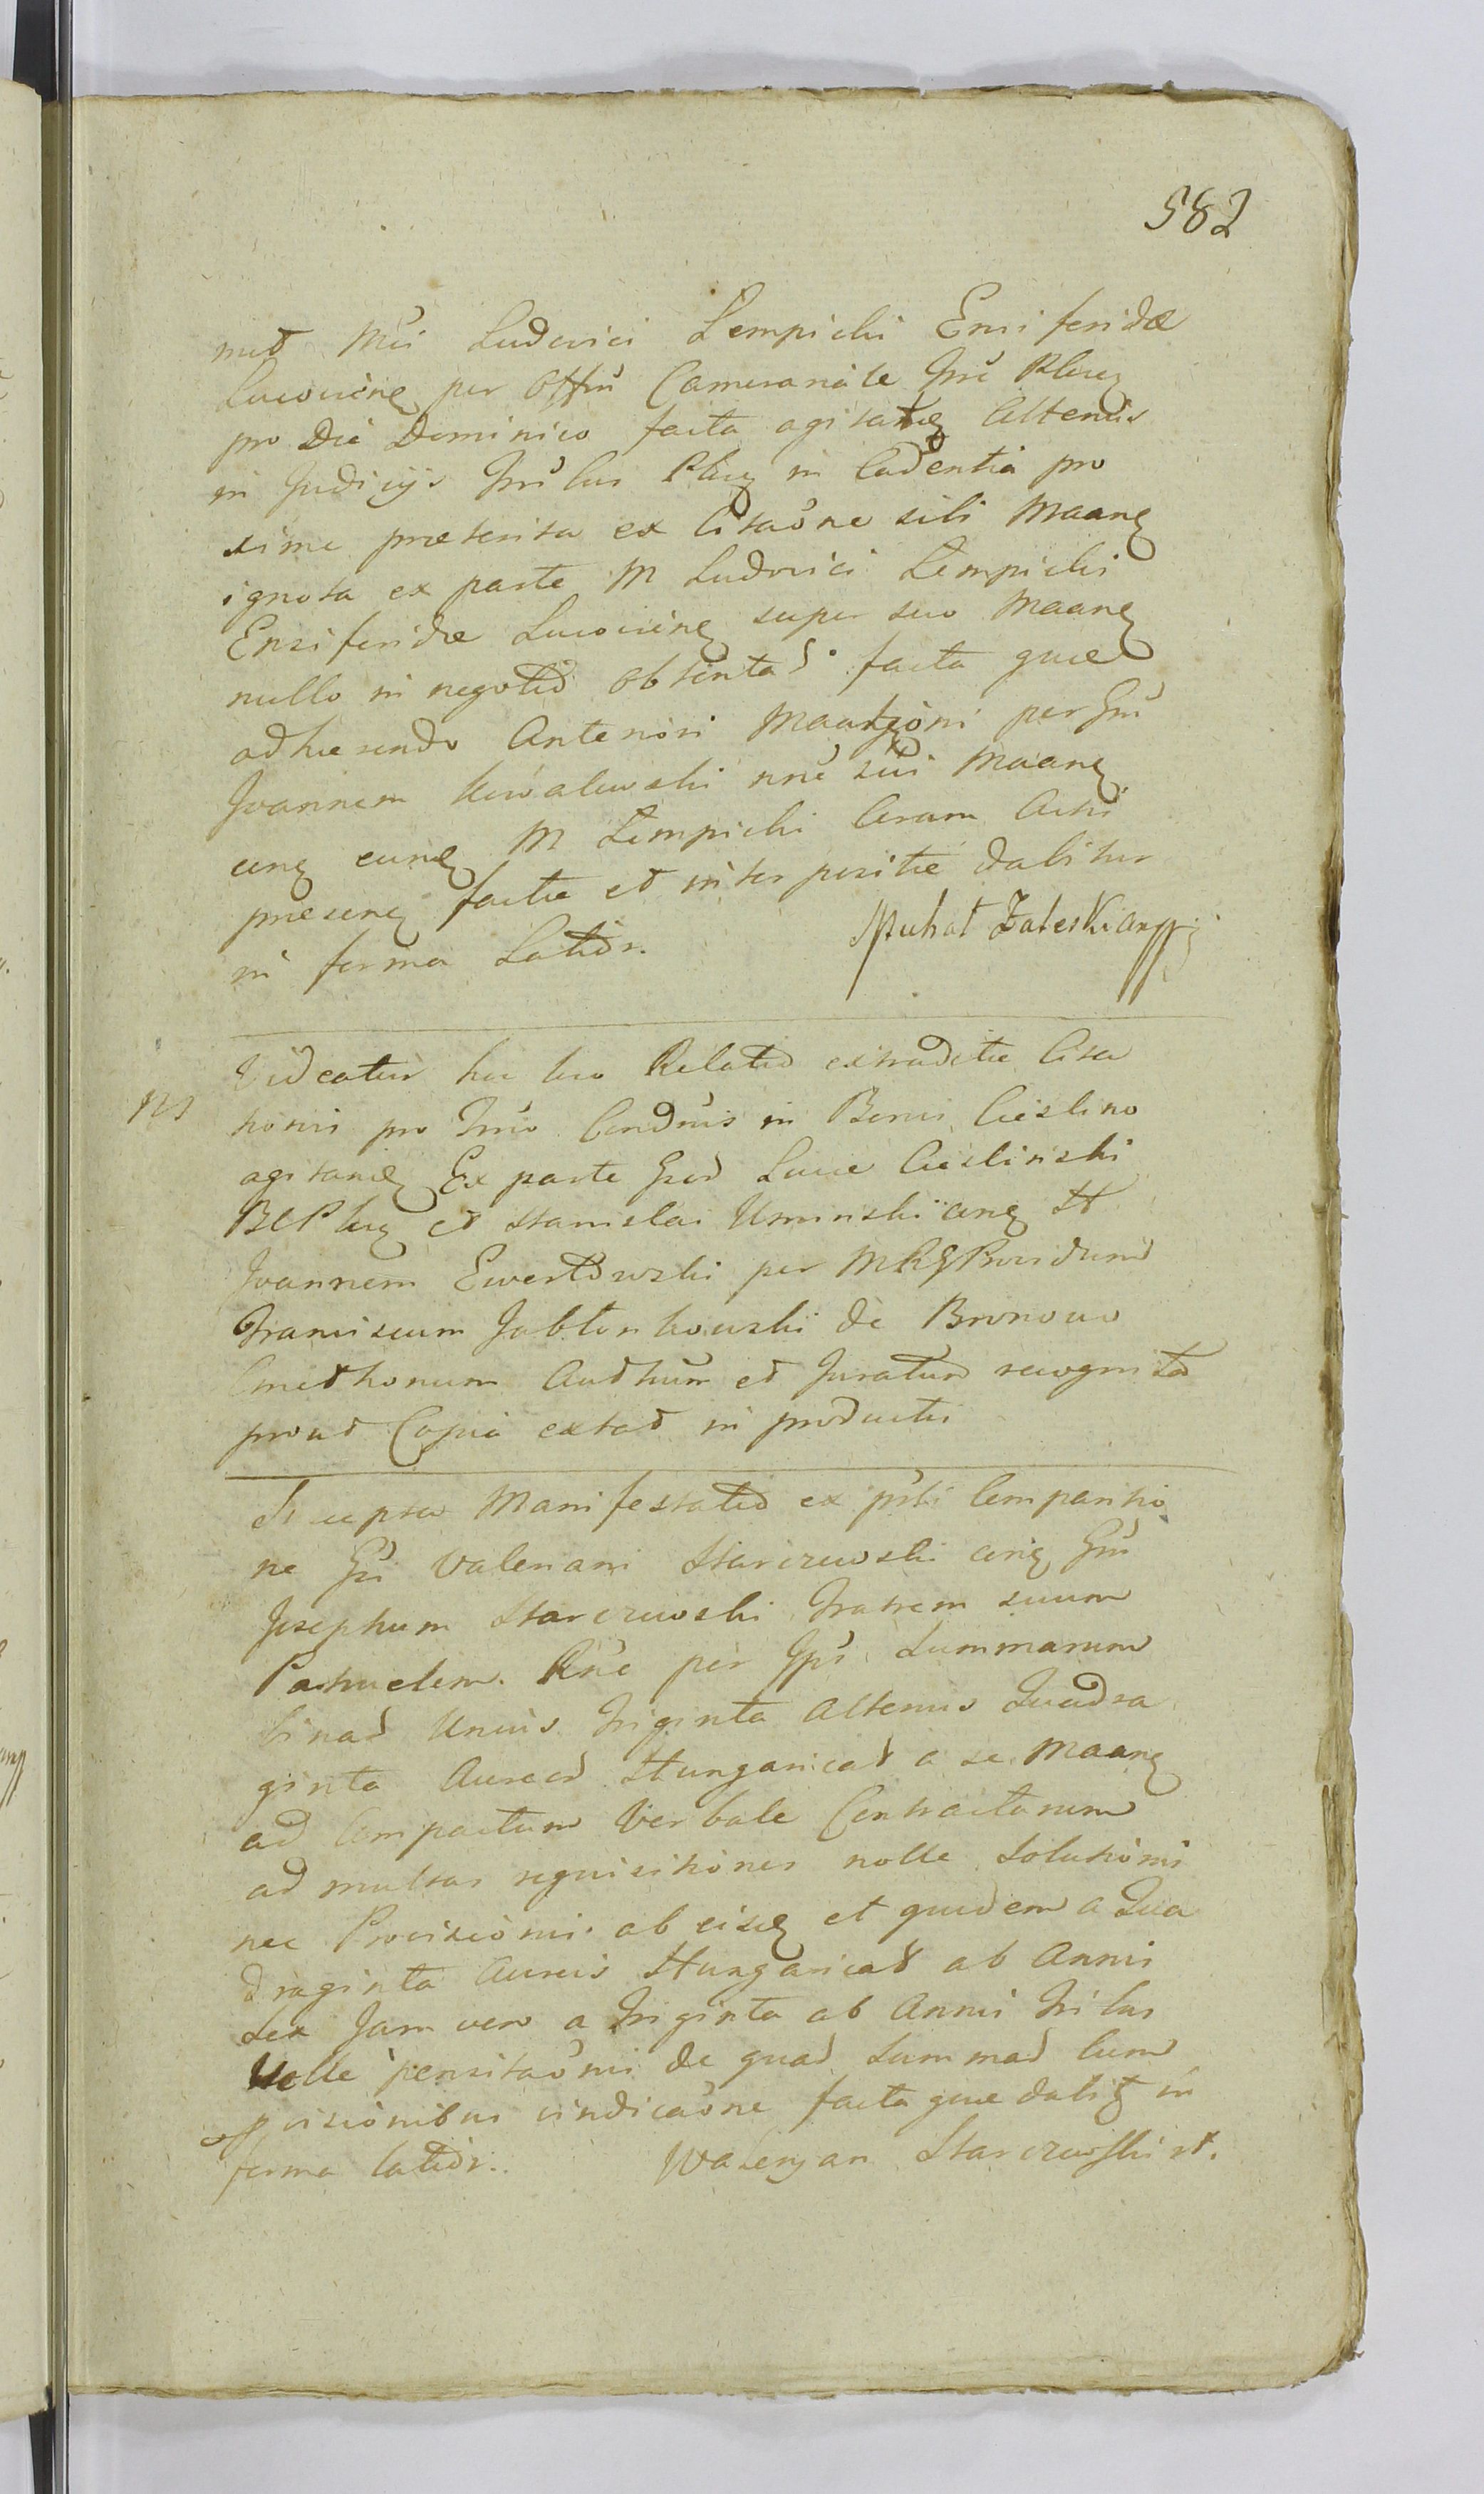 582
met Mci Ludovici Lempicki Ensiferidæ
per Offm Camerariale Plocq
pro Die Dominico facta agitatæ Alterius
in Judicijs Plocq in Cadentia pro
xime præterita ex Citaõne sibi Maanq
ignota ex parte M Ludovici Lempicki
Ensiferidæ super suo Maanq
nullo in negotio obtenta facta quæ
adhærendo Anteriori per Gm
Joannem Kowalewski nñe sũi Maanq
cunq M Lempicki Coram Actis
præsenq factæ et interpositæ dabitur
in forma Latiõr.
Michał Zaleski
Videatur hic loco Relatio extraditæ Cita
tionis pro Condñis in Bonis Cieslino
agitandæ Ex parte Lucæ Cieslinski
et Stanislai Uminski cunq
Joannem Ewertowski per Providum
Franciscum Jabłonkowski de Bronowo
Cmethonum Authum et Juratum recognita
prout Copia extat in productis
Suscepta Manifestatio ex Comparitio
ne Gsi Valeriani Starczewski cunq Gm
Josephum Starczewski Fratrem suum
Patruelem. per Summarum
binas Unius Triginta Alterius Quadra
ginta Aureos Hungaricat a se Maanq
ad Compactum Verbale Contractarum
ad multas requisitiones nolle Solutionis
nec Provisionis ab eisq et quidem a Qua
draginta Aureis Hungaricat ab Annis
Sex Jam vero a Triginta ab Annis Tribus
Nolle pensitaõnis de quas Summas Cum
pvisionibus vindicaõne facta quæ dabitq in
forma latiõr.
Waleryan Starczewski